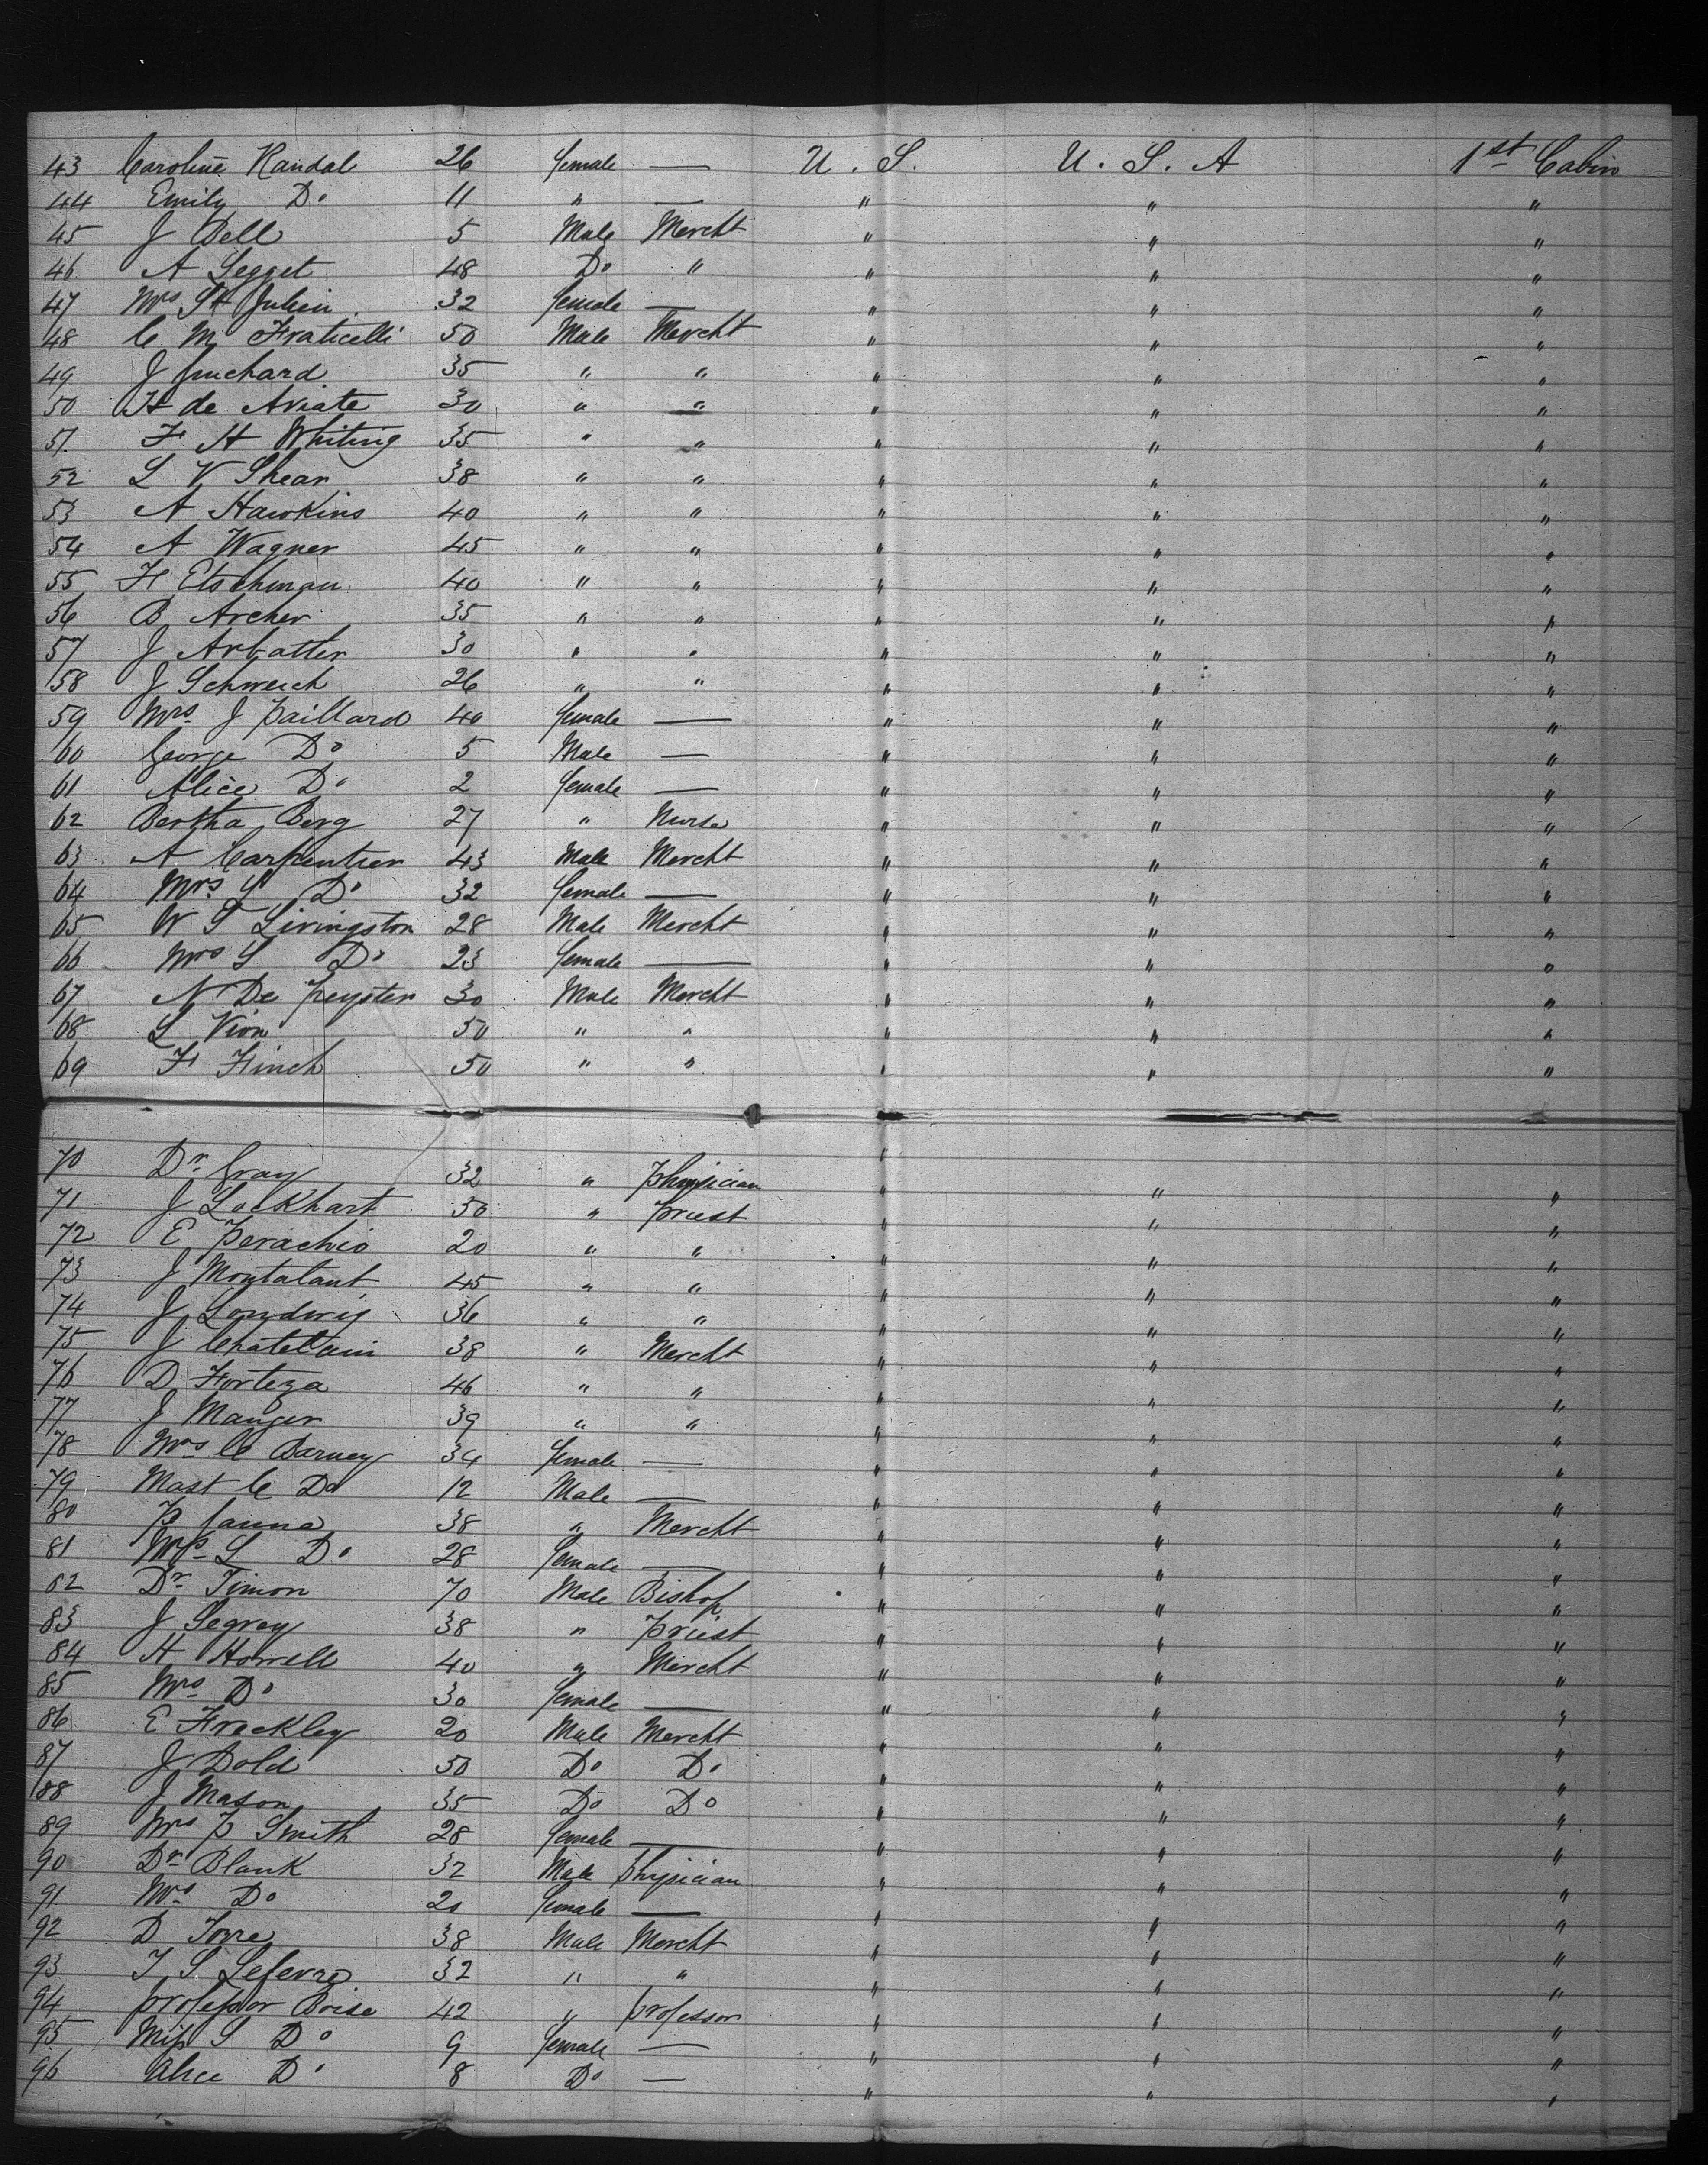 43 Caroline Randal 26 female — U. S. U. S. A 1st Cabin
44 Emily Do 11 " — " " "
45 J Bell 5 Male Mercht " " "
46 A Legget 48 Do " " " "
47 Mrs St Julien 32 female — " " "
48 C M Fraticelli 50 Male Mercht " " "
49 J 35 " " " " "
50 H de Aviate 30 " " " " "
51 F H Whiting 35 " " " " "
52 L V Shear 38 " " " " "
53 A Hawkins 40 " " " " "
54 A Wagner 45 " " " " "
55 H Etschman 40 " " " " "
56 B Archer 35 " " " " "
57 J Arbatter 30 " " " " "
58 J Schweich 26 " " " " "
59 Mrs J Paillard 40 female — " " "
60 George Do 5 Male — " " "
61 Alice Do 2 female — " " "
62 Bertha Berg 27 " Nurse " " "
63 A Carpentier 43 Male Mercht " " "
64 Mrs Do 32 female — " " "
65 W S Livingston 28 Male Mercht " " "
66 Mrs S Do 23 female — " " "
67 N De Peyster 30 Male Mercht " " "
68 L Vion 50 " " " " "
69 F Finch 50 " " " " "
70 Dr Gray 32 " Physician " " "
71 J Lockhart 50 " Priest " " "
72 E Perachio 20 " " " " "
73 J Montalant 45 " " " " "
74 J Londwig 36 " " " " "
75 J Chatelain 38 " Mercht " " "
76 D Forteza 46 " " " " "
77 J Manger 39 " " " " "
78 Mrs C Barney 34 female — " " "
79 Mast C Do 12 Male — " " "
80 P Janna 38 " Mercht " " "
81 Mrs L Do 28 female — " " "
82 Dr Timon 70 Male Bishop " " "
83 J Segrey 38 " Priest " " "
84 H Howell 40 " Mercht " " "
85 Mrs Do 30 female — " " "
86 E Freckley 20 Male Mercht " " "
87 J Dold 50 Do Do " " "
88 J Mason 35 Do Do " " "
89 Mrs P Smith 28 female — " " "
90 Dr Blank 32 Male Physician " " "
91 Mrs Do 20 female — " " "
92 D Torre 38 Male Mercht " " "
93 T S Lefevre 32 " " " " "
94 Professor Boise 42 " professor " " "
95 Miss S Do 9 female — " " "
96 Alice Do 8 Do — " " "